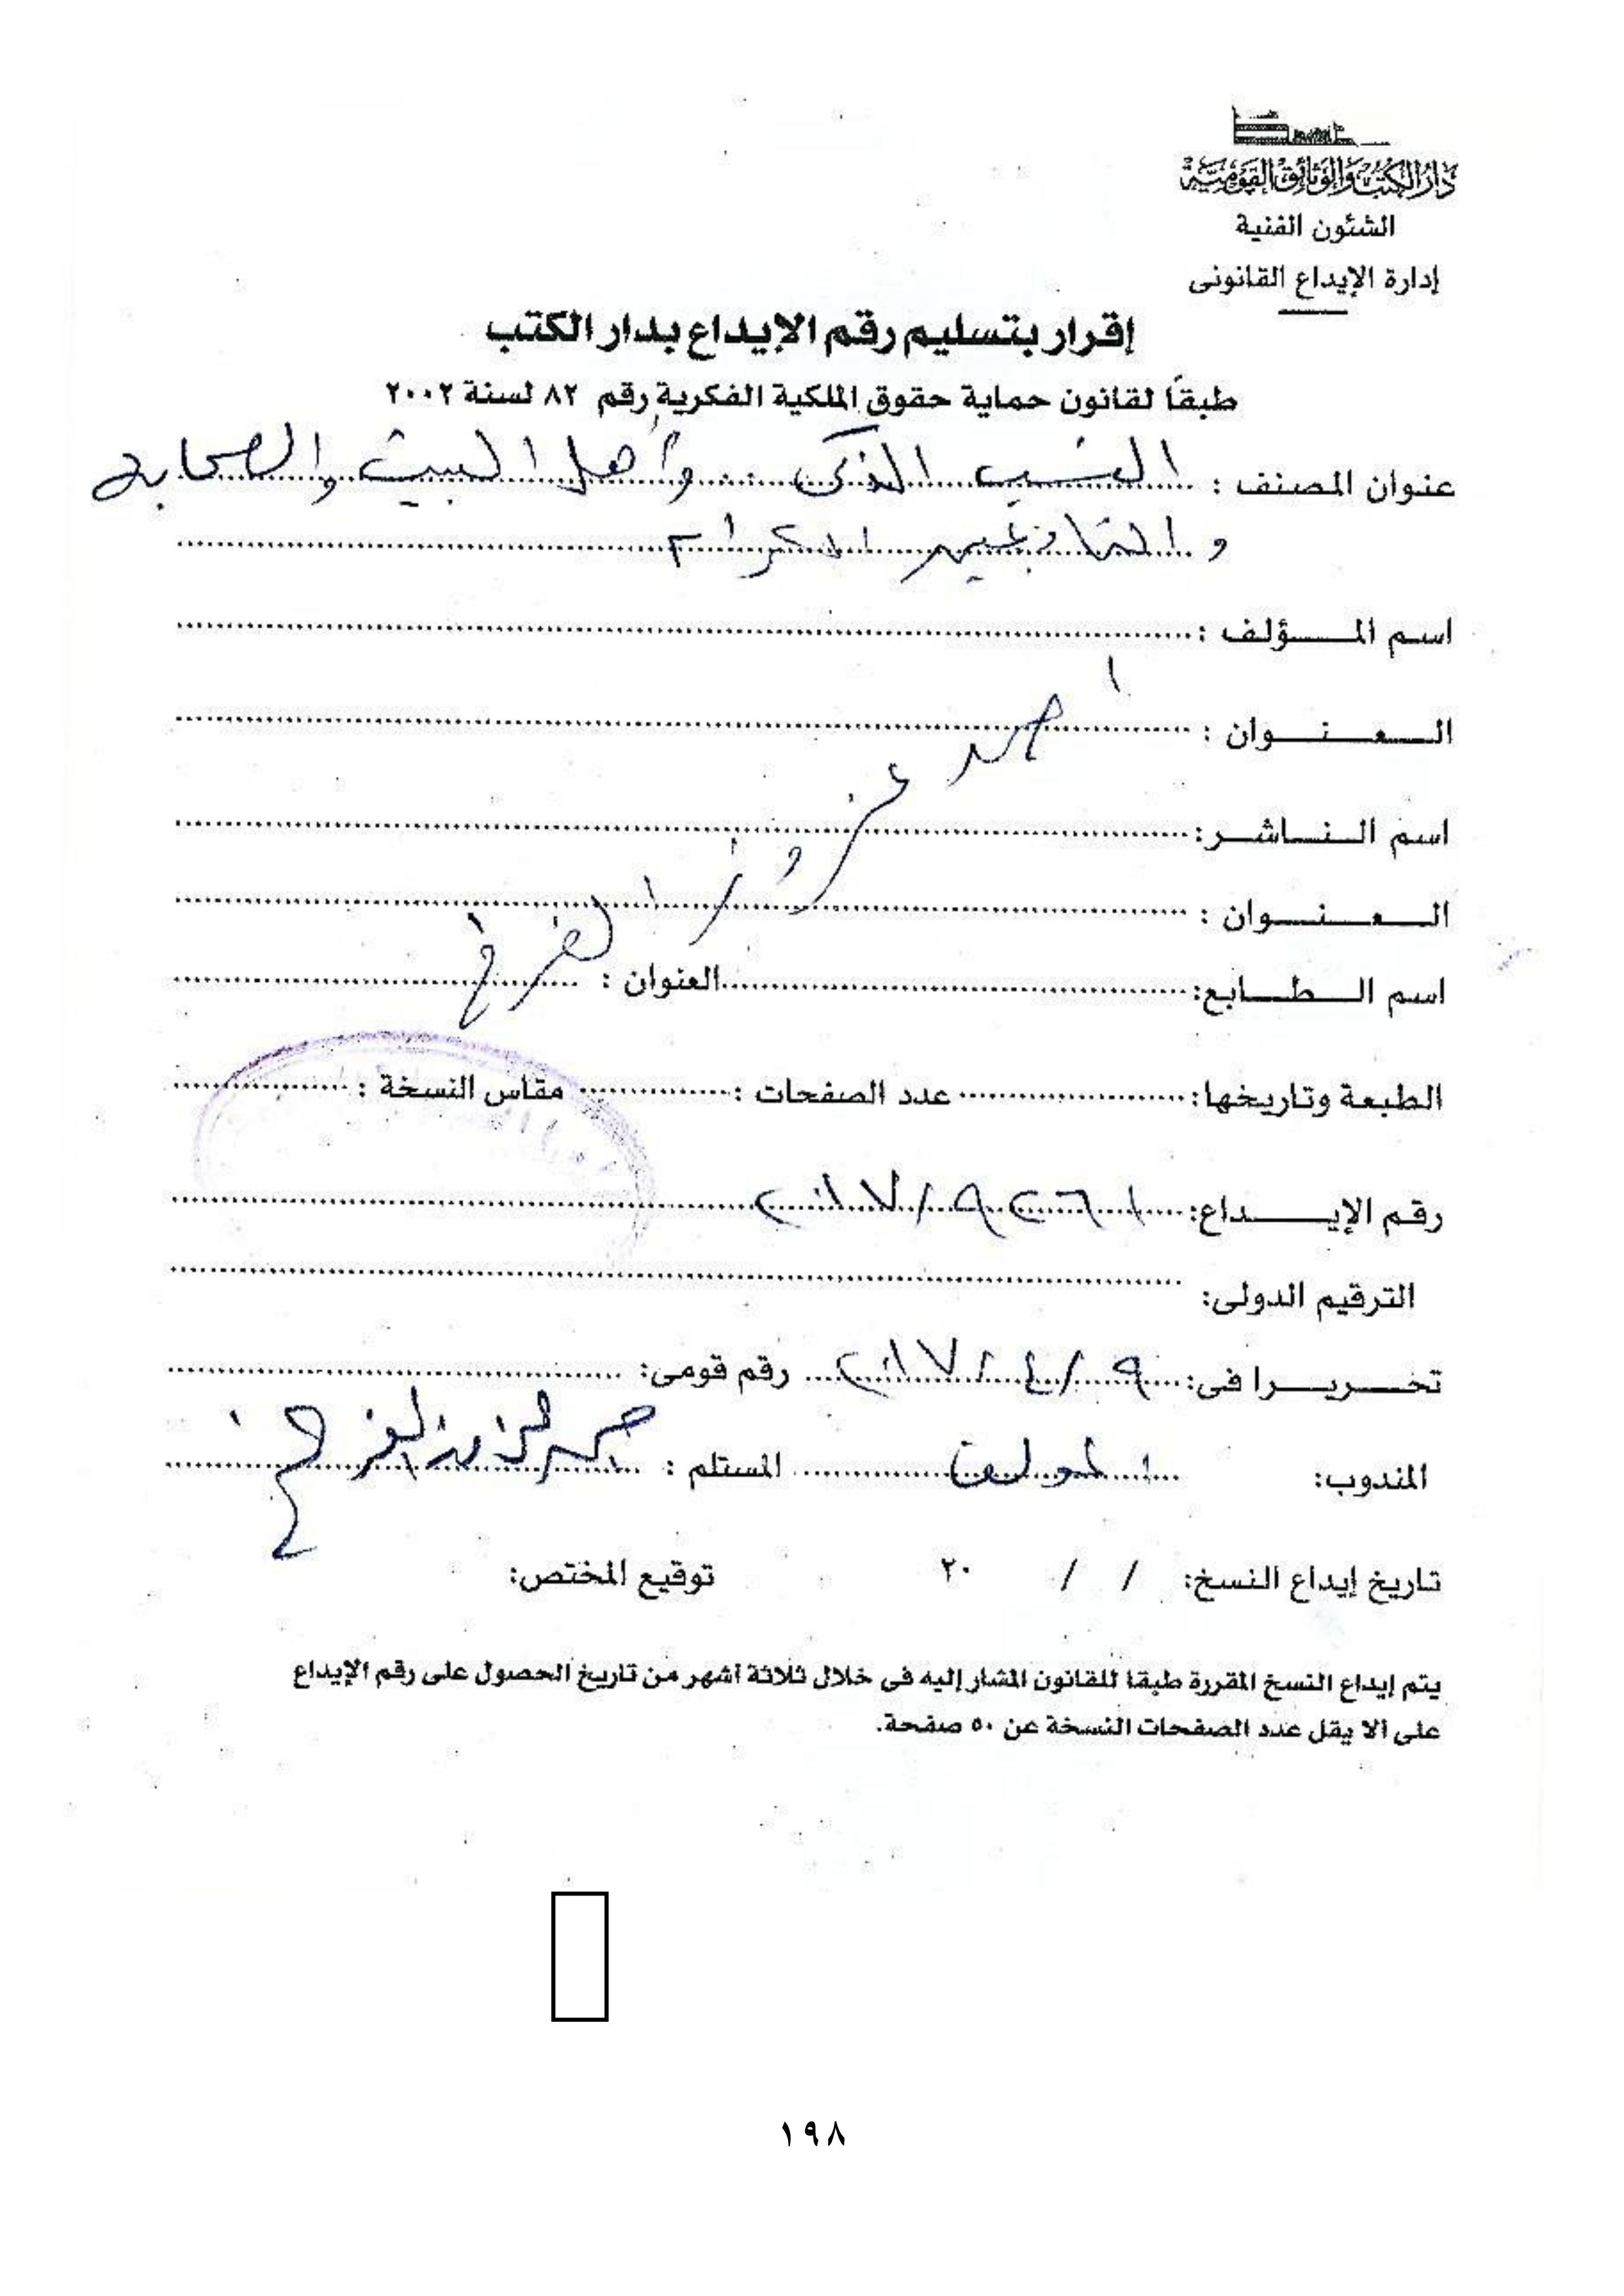 دار الكتب والوثائق القومية
الشئون الفنية
إدارة الإيداع القانونى
إقرار بتسليم رقم الإيداع بدار الكتب
طبقاً لقانون حماية حقوق الملكية الفكرية رقم ٨٢ لسنة ٢٠٠٢
عنوان المصنف : النسب الذكى وأهل البيت والصحابة
والتابعين الكرام
اسم المـــؤلف :
العـنـوان :
أحمد
اسم الـنـاشـر :
العـنـوان :
الفرخ
اسم الـطـابع: العنوان :
الطبعة وتاريخها: عدد الصفحات : مقاس النسخة :
رقم الإيـــداع: ٩٢٦١ / ٢٠١٧
الترقيم الدولى:
تحـريـرا فى: ٩ / ٤ / ٢٠١٧ رقم قومى:
المندوب: المؤلف المستلم :
تاريخ إيداع النسخ: / / ٢٠ توقيع المختص:
يتم إيداع النسخ المقررة طبقا للقانون المشار إليه فى خلال ثلاثة أشهر من تاريخ الحصول على رقم الإيداع
على ألا يقل عدد الصفحات النسخة عن ٥٠ صفحة.
١٩٨